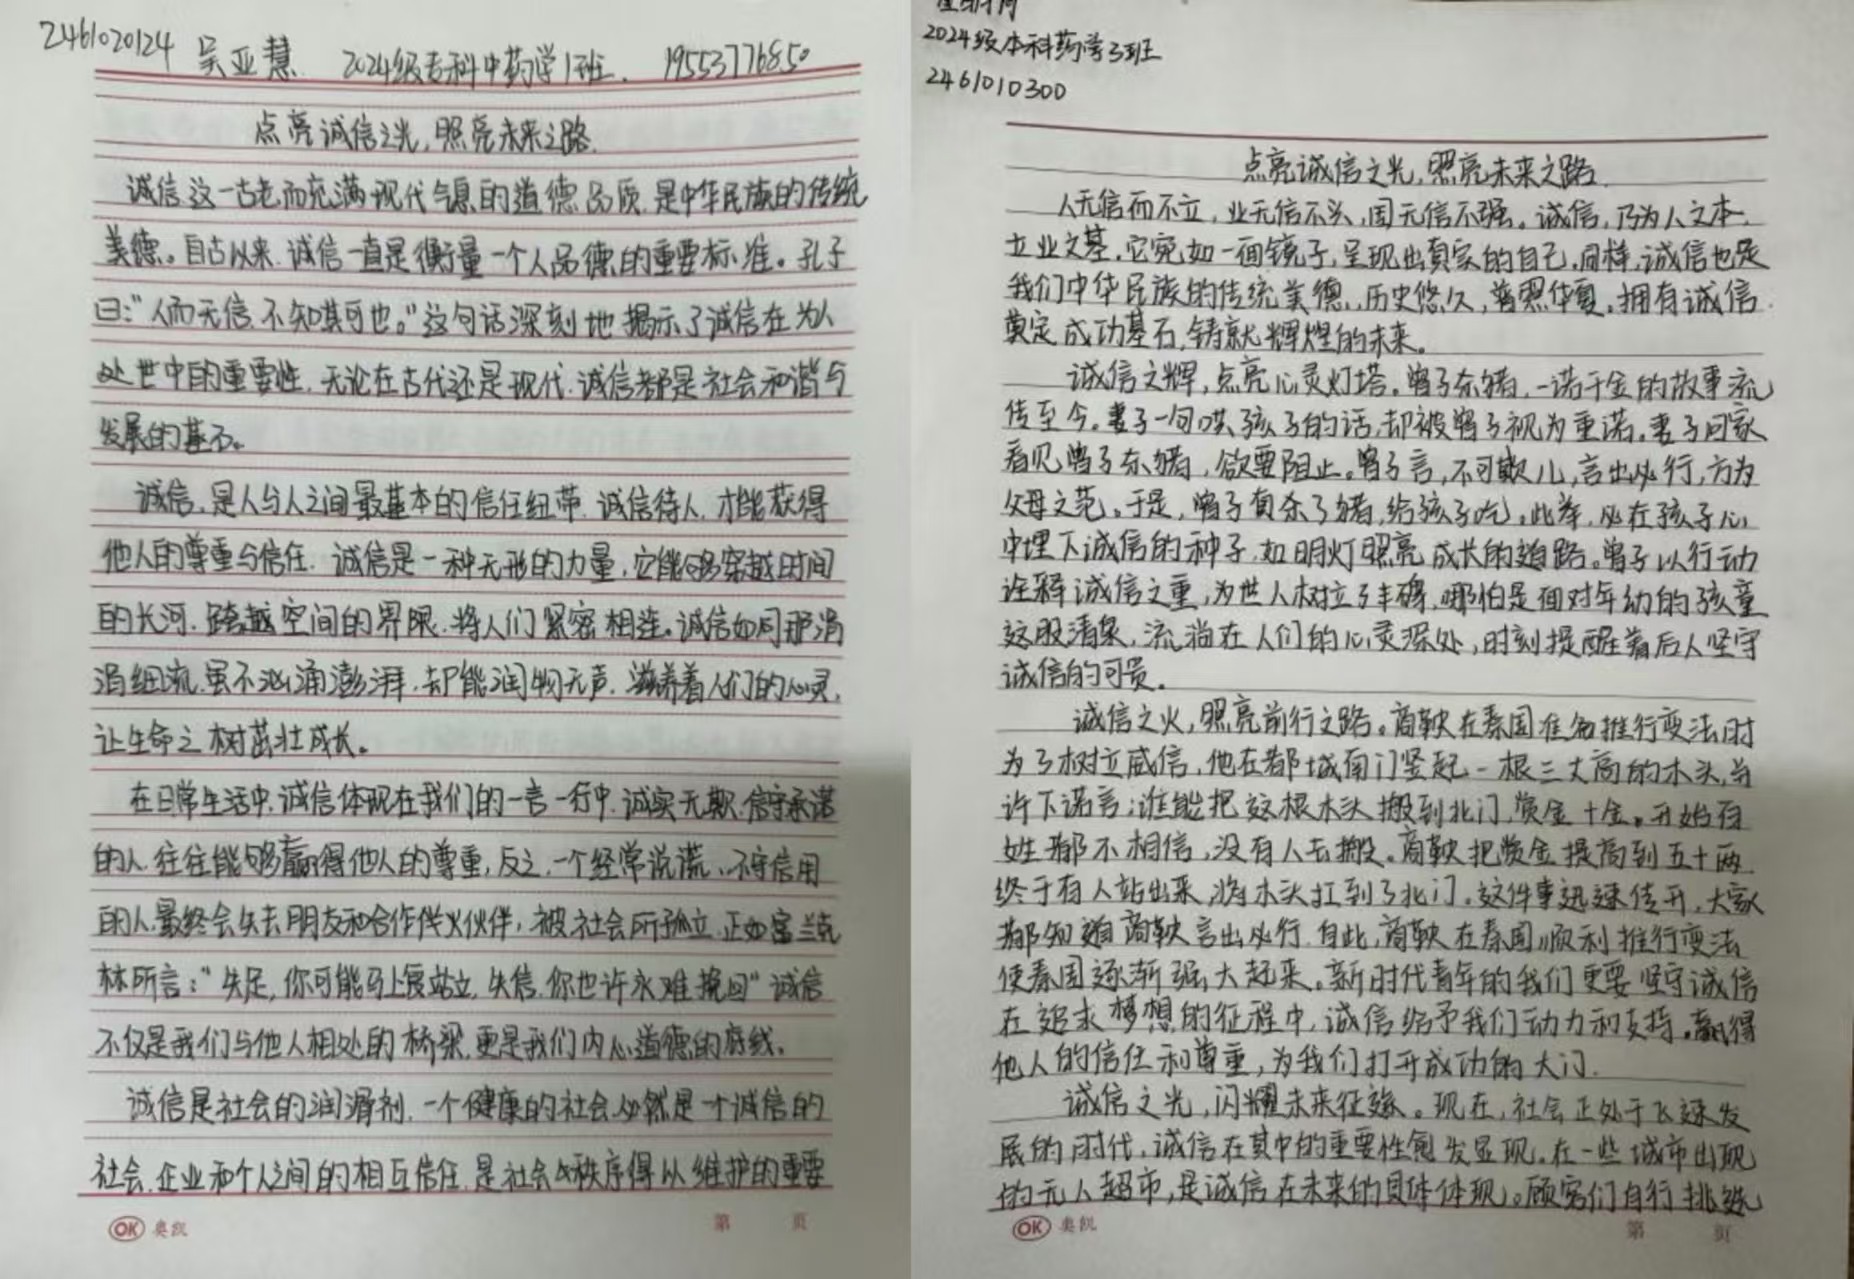 2461020124 吴亚慧 2024级专科中药学1班. 19553776850
点亮诚信之光,照亮未来之路.
诚信这一古老而充满现代气息的道德品质,是中华民族的传统
美德。自古以来,诚信一直是衡量一个人品德的重要标准。孔子
曰:“人而无信,不知其可也。”这句话深刻地揭示了诚信在为人
处世中的重要性,无论在古代还是现代,诚信都是社会和谐与
发展的基石。
诚信,是人与人之间最基本的信任纽带,诚信待人,才能获得
他人的尊重与信任.诚信是一种无形的力量,它能够穿越时间
的长河,跨越空间的界限,将人们紧密相连。诚信如同那涓
涓细流,虽不汹涌澎湃,却能润物无声,滋养着人们的心灵,
让生命之树茁壮成长。
在日常生活中,诚信体现在我们的一言一行中,诚实无欺,信守承诺
的人,往往能够赢得他人的尊重,反之,一个经常说谎、不守信用
的人,最终会失去朋友和合作伴火伙伴,被社会所孤立,正如富兰克
林所言:“失足,你可能马上复站立,失信,你也许永难挽回”诚信
不仅是我们与他人相处的桥梁,更是我们内心道德的底线。
诚信是社会的润滑剂,一个健康的社会,必然是一个诚信的
社会,企业和个人之间的相互信任,是社会秩序得以维护的重要
OK 奥凯 第 页
2024级本科药学3班
2461010300
点亮诚信之光,照亮未来之路.
人无信而不立,业无信不兴,国无信不强。诚信,乃为人之本,
立业之基,它宛如一面镜子,呈现出真实的自己,同样,诚信也是
我们中华民族的传统美德,历史悠久,普照华夏。拥有诚信,
奠定成功基石,铸就辉煌的未来。
诚信之辉,点亮心灵灯塔。曾子杀猪,一诺千金的故事流
传至今。妻子一句哄孩子的话,却被曾子视为重诺。妻子回家
看见曾子杀猪,欲要阻止。曾子言,不可欺儿,言出必行,方为
父母之范。于是,曾子真杀了猪,给孩子吃,此举,必在孩子心
中埋下诚信的种子,如明灯照亮成长的道路。曾子以行动
诠释诚信之重,为世人树立了丰碑,哪怕是面对年幼的孩童
这股清泉,流淌在人们的心灵深处,时刻提醒着后人坚守
诚信的可贵。
诚信之火,照亮前行之路。商鞅在秦国准备推行变法时
为了树立威信,他在都城南门竖起一根三丈高的木头,当
许下诺言:谁能把这根木头搬到北门,赏金十金。开始百
姓都不相信,没有人去搬。商鞅把赏金提高到五十两
终于有人站出来,将木头扛到了北门。这件事迅速传开,大家
都知道商鞅言出必行,自此,商鞅在秦国顺利推行变法
使秦国逐渐强大起来。新时代青年的我们更要坚守诚信
在追求梦想的征程中,诚信给予我们动力和支持。赢得
他人的信任和尊重,为我们打开成功的大门.
诚信之光,闪耀未来征途。现在,社会正处于飞速发
展的时代,诚信在其中的重要性愈发显现。在一些城市出现
的无人超市,是诚信在未来的具体体现。顾客们自行挑选
OK 奥凯 第 页